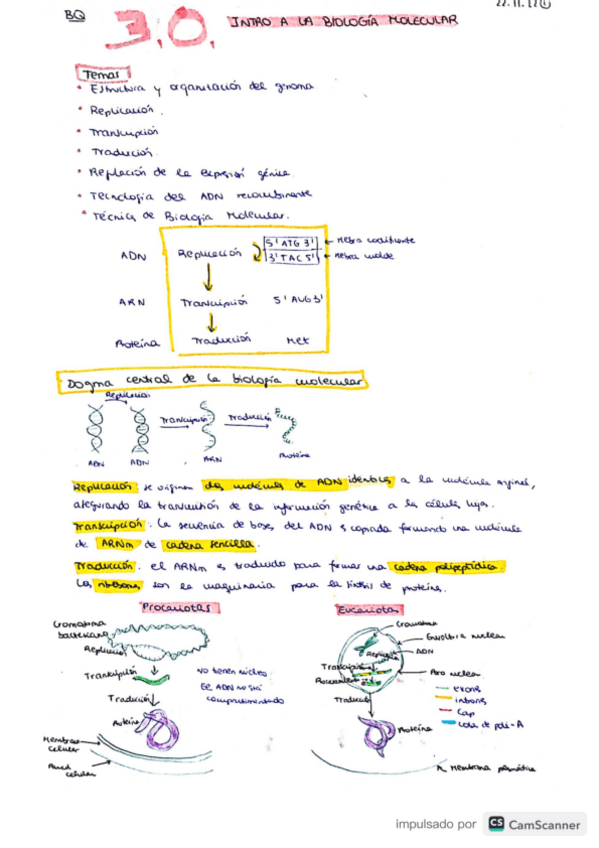 BQ
3.0.
INTRO A LA BIOLOGÍA MOLECULAR
22.11.22
Temas
• Estructura y organización del genoma
• Replicación.
• Transcripción
• Traducción.
• Regulación de la Expresión génica.
• Tecnología del ADN recombinante
• Técnicas de Biología Molecular.
ADN
Replicación
5' ATG 3'
3' TAC 5'
← Hebra codificante
← Hebra molde
ARN
Transcripción
5' AUG 3'
Proteína
Traducción
Met
Dogma central de la biología molecular
Replicación
Transcripción
Traducción
ADN
ADN
ARN
Proteína
Replicación: se originan dos moléculas de ADN idénticas a la molécula original,
asegurando la transmisión de la información genética a las células hijas.
Transcripción: La secuencia de bases del ADN es copiada formando una molécula
de ARNm de cadena sencilla.
Traducción: el ARNm es traducido para formar una cadena polipeptídica.
Los ribosomas son la maquinaria para la síntesis de proteínas.
Procariotas
Cromosoma
bacteriano
Replicación
Transcripción
Traducción
Proteína
Membrana
celular
Pared
celular
No tienen núcleo
El ADN no está
compartimentado
Eucariotas
Cromosoma
Envoltura nuclear
ADN
Replicación
Transcripción
Procesamiento
Poro nuclear
Traducción
Proteína
exones
intrones
Cap
cola de poli-A
Membrana plasmática
impulsado por CS CamScanner